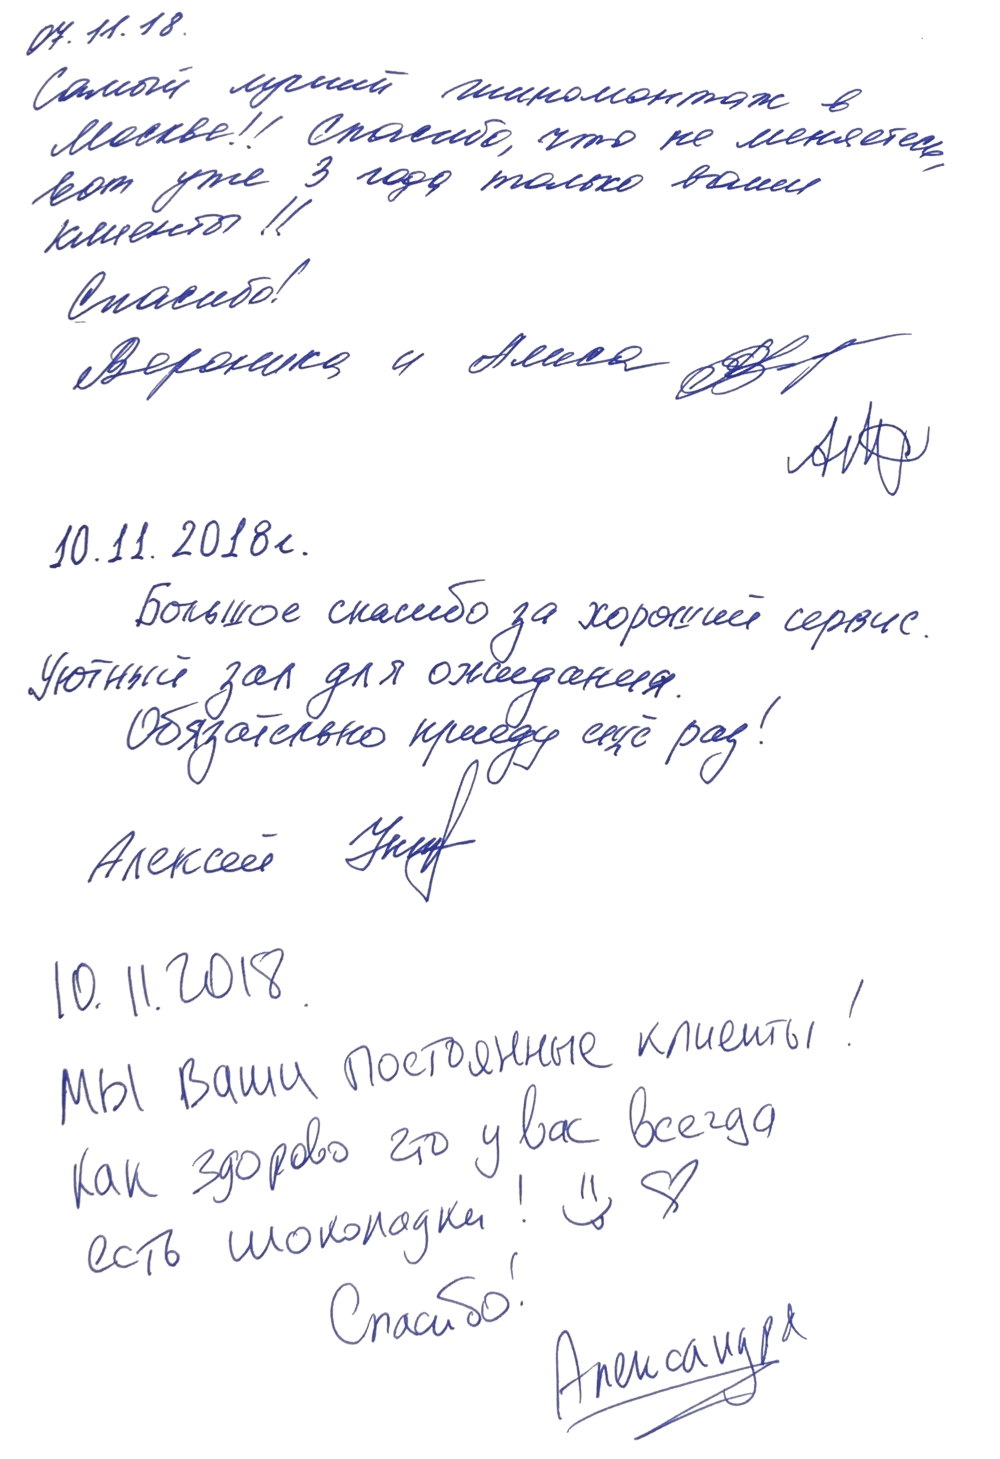 07.11.18.
Самый лучший шиномонтаж в
Москве!! Спасибо, что не меняетесь,
вот уже 3 года только ваши
клиенты!!
Спасибо!
Вероника и Алиса
10.11.2018г.
Большое спасибо за хороший сервис.
Уютный зал для ожидания.
Обязательно приеду ещё раз!
Алексей
10.11.2018.
Мы Ваши постоянные клиенты!
Как здорово что у вас всегда
есть шоколадки!
Спасибо!
Александра